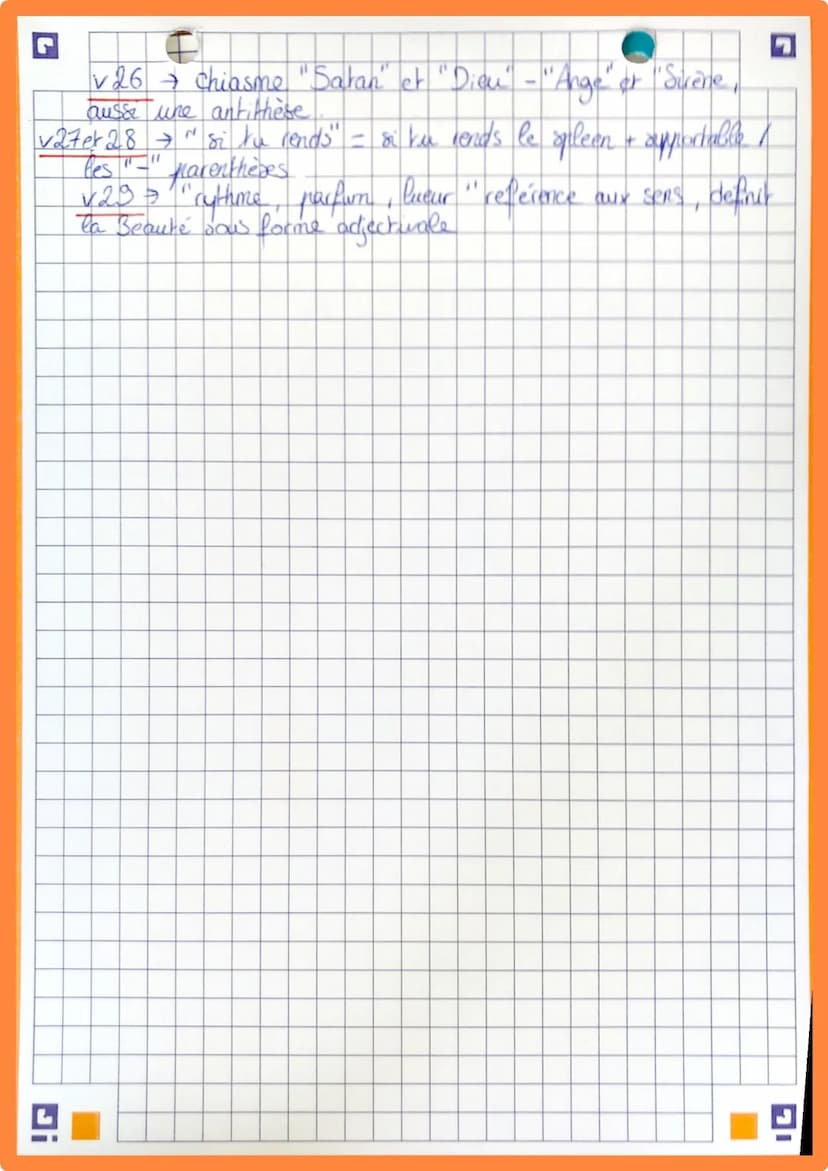 v26 → chiasme "Satan" et "Dieu" - "Ange" et "Sirène,
aussi une antithèse
v27 et 28 → " si tu rends" = si tu rends le spleen + supportable /
les "-" parenthèses
v29 → "rythme, parfum, lueur " reférence aux sens, définit
la Beauté sous forme adjectivale